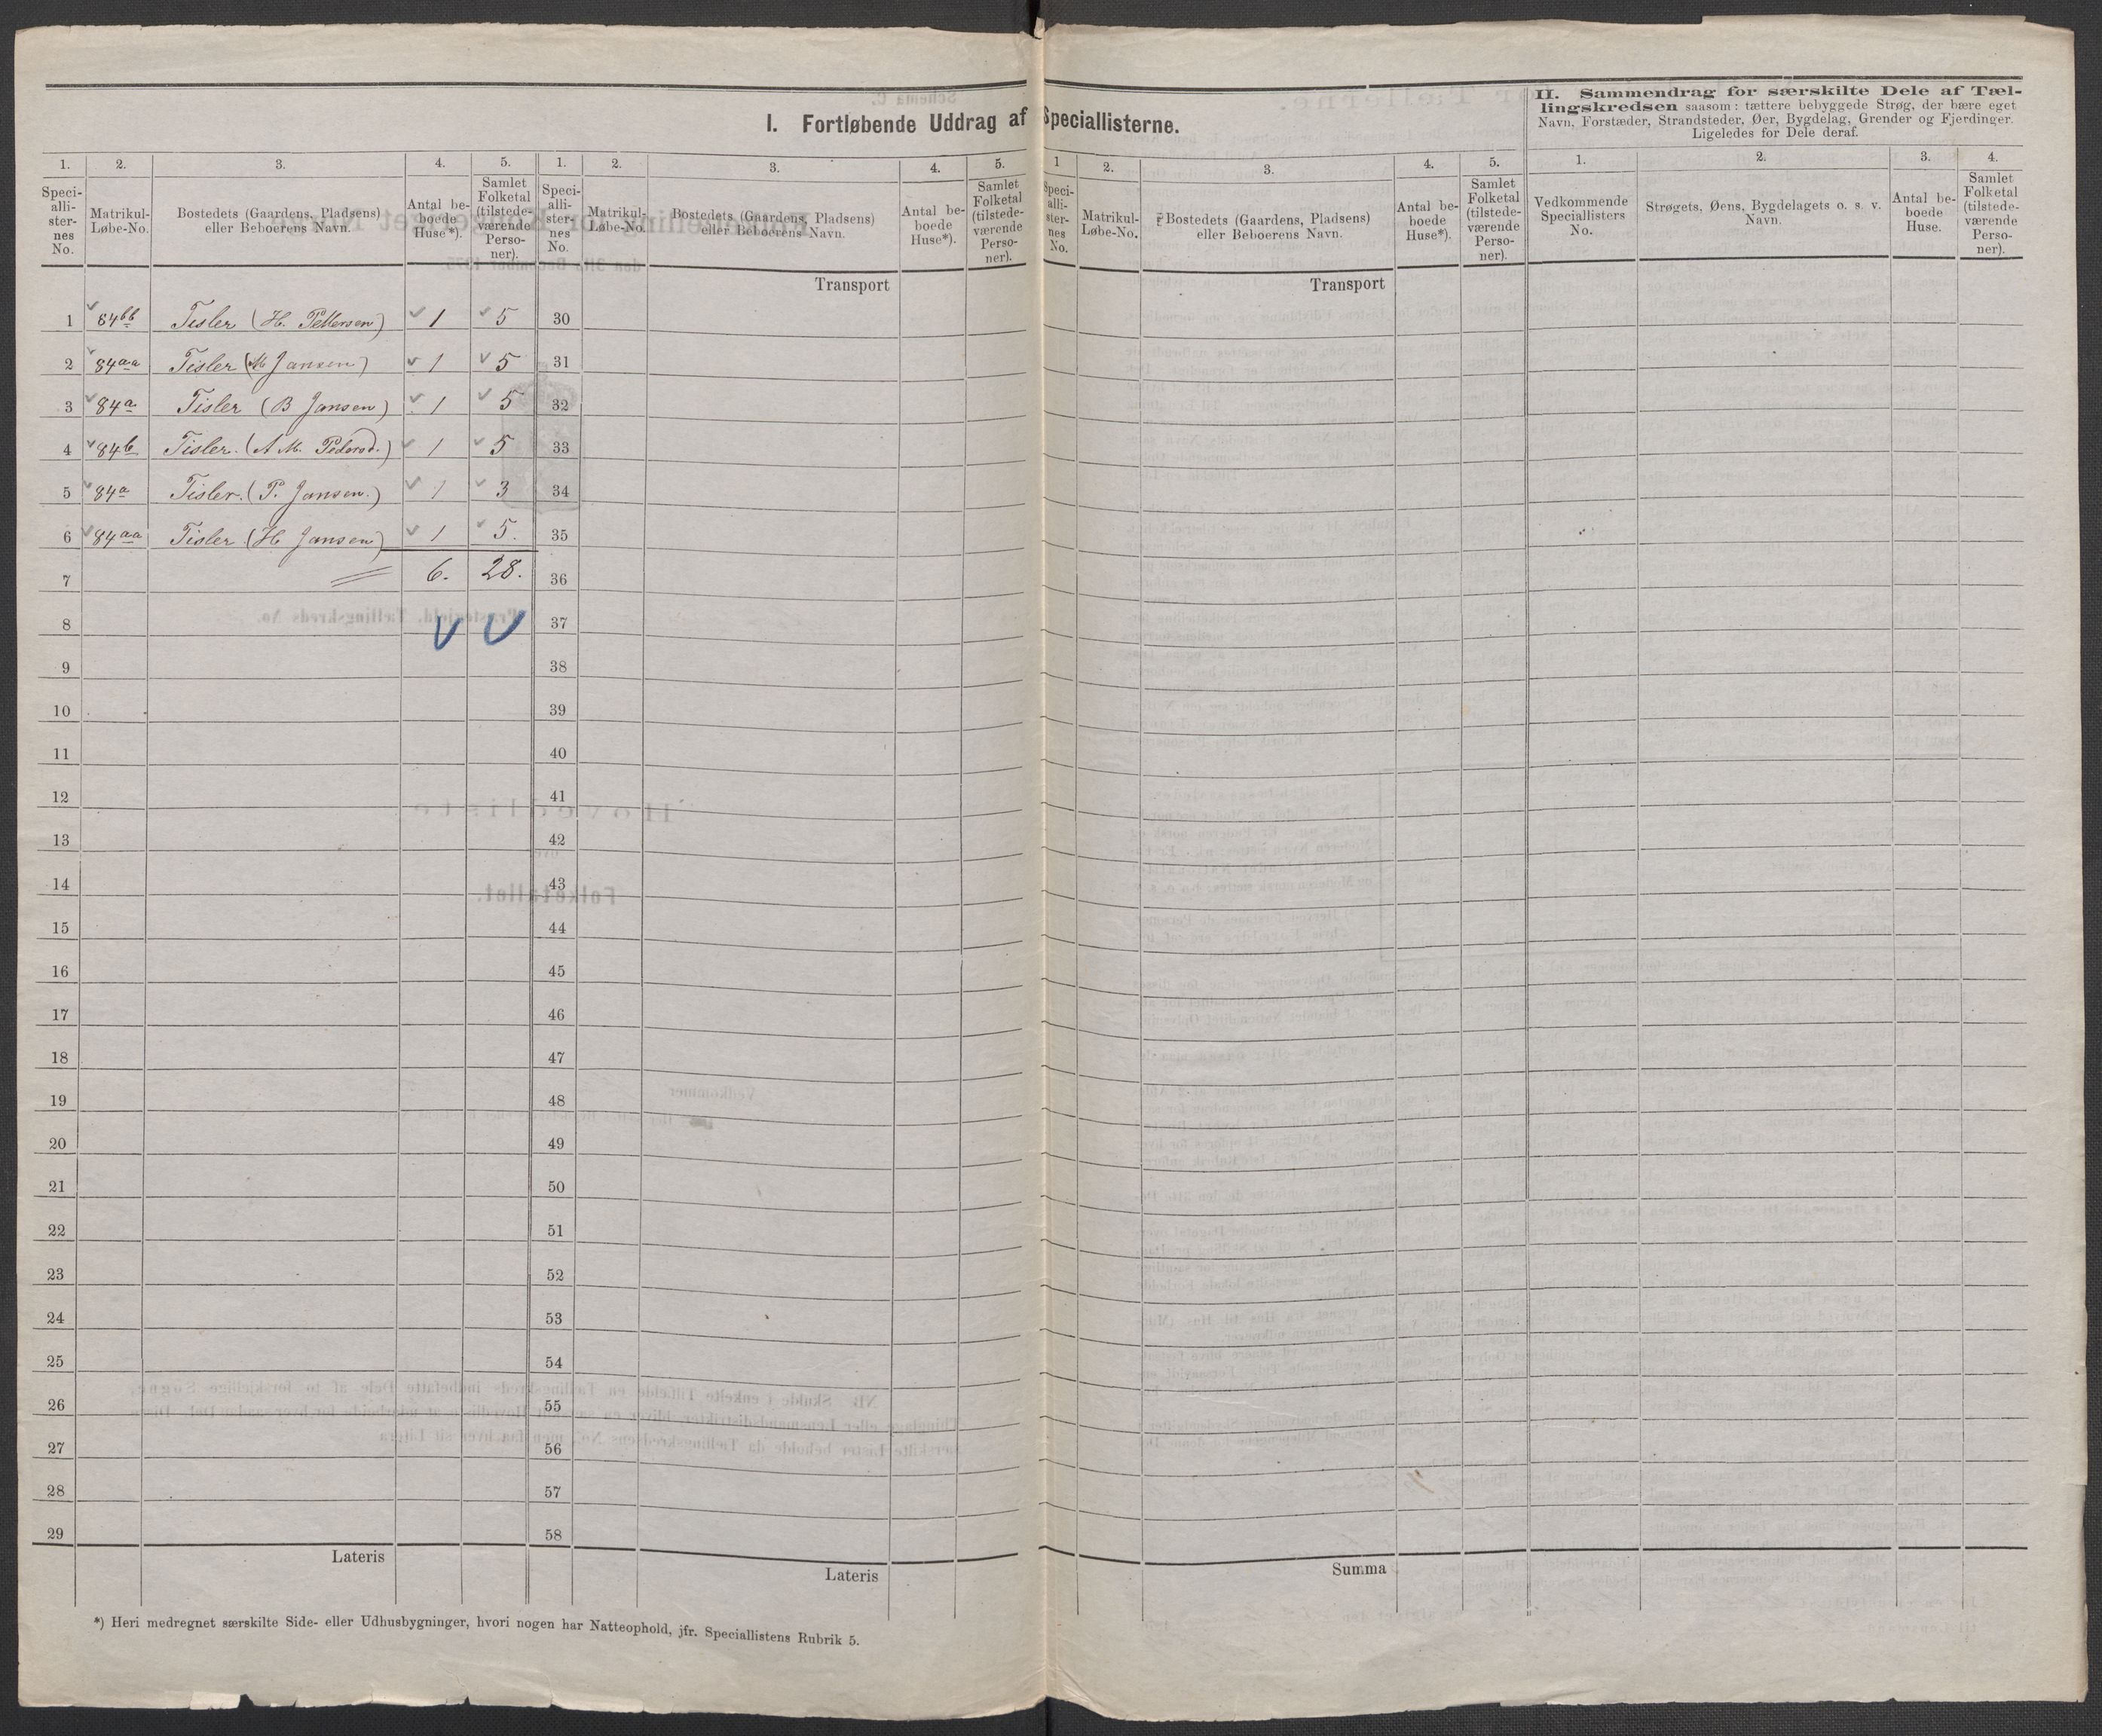 I. Fortløbende Uddrag af Speciallisterne.
II. Sammendrag for særskilte Dele af Tæl-
lingskredsen saasom: tættere bebyggede Strøg, der bære eget
Navn, Forstæder, Strandsteder, Øer, Bygdelag, Grender og Fjerdinger.
Ligeledes for Dele deraf.
1. 2. 3. 4. 5. 1. 2. 3. 4. 5. 1 2. 3. 4. 5. 1. 2. 3. 4.
Speci-
alli-
ster-
nes
No.
Matrikul-
Løbe-No.
Bostedets (Gaardens, Pladsens)
eller Beboerens Navn.
Antal be-
boede
Huse*).
Samlet
Folketal
(tilstede-
værende
Perso-
ner).
Speci-
alli-
ster-
nes
No.
Matrikul-
Løbe-No.
Bostedets (Gaardens, Pladsens)
eller Beboerens Navn.
Antal be-
boede
Huse*).
Samlet
Folketal
(tilstede-
værende
Perso-
ner).
Speci-
alli-
ster-
nes
No.
Matrikul-
Løbe-No.
Bostedets (Gaardens, Pladsens)
eller Beboerens Navn.
Antal be-
boede
Huse*).
Samlet
Folketal
(tilstede-
værende
Perso-
ner).
Vedkommende
Speciallisters
No.
Strøgets, Øens, Bygdelagets o. s. v.
Navn.
Antal be-
boede
Huse.
Samlet
Folketal
(tilstede-
værende
Perso-
ner).
Transport Transport
1 84bb Tisler (H. Pettersen) 1 5 30
2 84aa Tisler (M Jansen) 1 5 31
3 84a Tisler (B Jansen) 1 5 32
4 84b Tisler. (A M. Pedersd.) 1 5 33
5 84a Tisler. (P. Jansen.) 1 3 34
6 84aa Tisler. (H Jansen) 1 5. 35
7 6. 28. 36
8 37
9 38
10 39
11 40
12 41
13 42
14 43
15 44
16 45
17 46
18 47
19 48
20 49
21 50
22 51
23 52
24 53
25 54
26 55
27 56
28 57
29 58
Lateris Lateris Summa
*) Heri medregnet særskilte Side- eller Udhusbygninger, hvori nogen har Natteophold, jfr. Speciallistens Rubrik 5.